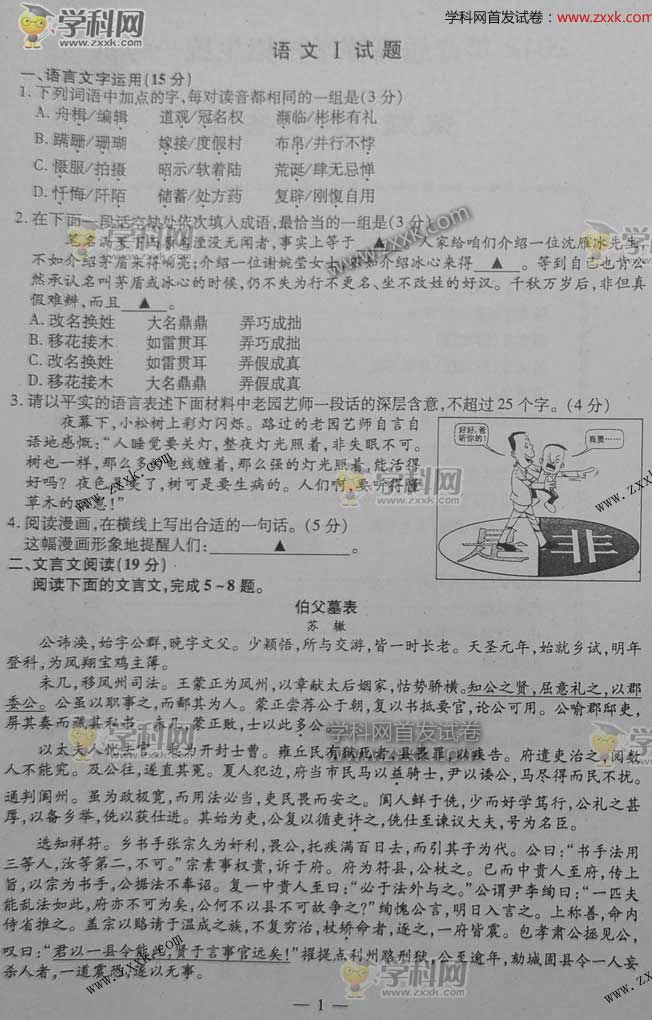 学科网首发试卷:www.zxxk.com
学科网
www.zxxk.com
语文Ⅰ试题
一、语言文字运用(15分)
1. 下列词语中加点的字,每对读音都相同的一组是(3分)
A. 舟楫/编辑 道观/冠名权 濒临/彬彬有礼
B. 蹒跚/珊瑚 嫁接/度假村 布帛/并行不悖
C. 慑服/拍摄 昭示/软着陆 荒诞/肆无忌惮
D. 忏悔/阡陌 储蓄/处方药 复辟/刚愎自用
2. 在下面一段话空缺处依次填入成语,最恰当的一组是(3分)
笔名满天下而原名湮没无闻者,事实上等于 ▲ 。人家给咱们介绍一位沈雁冰先生,
不如介绍茅盾来得响亮;介绍一位谢婉莹女士,不如介绍冰心来得 ▲ 。等到自己也肯公
然承认名叫茅盾或冰心的时候,仍不失为行不更名、坐不改姓的好汉。千秋万岁后,非但真
假难辨,而且 ▲ 。
A. 改名换姓 大名鼎鼎 弄巧成拙
B. 移花接木 如雷贯耳 弄巧成拙
C. 改名换姓 如雷贯耳 弄假成真
D. 移花接木 大名鼎鼎 弄假成真
3. 请以平实的语言表述下面材料中老园艺师一段话的深层含意,不超过25个字。(4分)
夜幕下,小松树上彩灯闪烁。路过的老园艺师自言自
语地感慨:“人睡觉要关灯,整夜灯光照着,非失眠不可。
树也一样,那么多的电线缠着,那么强的灯光照着,能活得
好吗?夜色是美了,树可是要生病的。人们啊,要听得懂
草木的叹息!”
好好,爸
听你的!
我要……
是 非
4. 阅读漫画,在横线上写出合适的一句话。(5分)
这幅漫画形象地提醒人们: ▲ 。
二、文言文阅读(19分)
阅读下面的文言文,完成5~8题。
伯父墓表
苏 辙
公讳涣,始字公群,晚字文父。少颖悟,所与交游,皆一时长老。天圣元年,始就乡试,明年
登科,为凤翔宝鸡主簿。
未几,移凤州司法。王蒙正为凤州,以章献太后姻家,怙势骄横。知公之贤,屈意礼之,以郡
委公。公虽以职事之,而鄙其为人。蒙正尝荐公于朝,复以书抵要官,论公可用。公喻郡邸吏,
屏其奏而藏其私书。未几,蒙正败,士以此多公。
学科网首发试卷
www.zxxk.com
以太夫人忧去官,起为开封士曹。雍丘民有狱死者,县畏罪,以疾告。府遣吏治之,阅数
人不能究。及公往,遂直其冤。夏人犯边,府当市民马以益骑士,尹以诿公,马尽得而民不扰。
通判阆州。虽为政极宽,而用法必当,吏民畏而安之。阆人鲜于侁,少而好学笃行,公礼之甚
厚,以备乡举,侁以获仕进。其始为吏,公复以循吏许之,侁仕至谏议大夫,号为名臣。
选知祥符。乡书手张宗久为奸利,畏公,托疾满百日去,而引其子为代。公曰:“书手法用
三等人,汝等第二,不可。”宗素事权贵,诉于府。府为符县,公杖之。已而中贵人至府,传上
旨,以宗为书手,公据法不奉诏。复一中贵人至曰:“必于法外与之。”公谓尹李绚曰:“一匹夫
能乱法如此,府亦不可为矣,公何不以县不可故争之?”绚愧公言,明日入言之。上称善,命内
侍省推之。盖宗以赂请于温成之族,不复穷治,杖矫命者,逐之,一府皆震。包孝肃公拯见公,
叹曰:“君以一县令能此,贤于言事官远矣!”擢提点利州路刑狱,公至逾年,劾城固县令一人妄
杀人者,一道震恐,遂以无事。
— 1 —